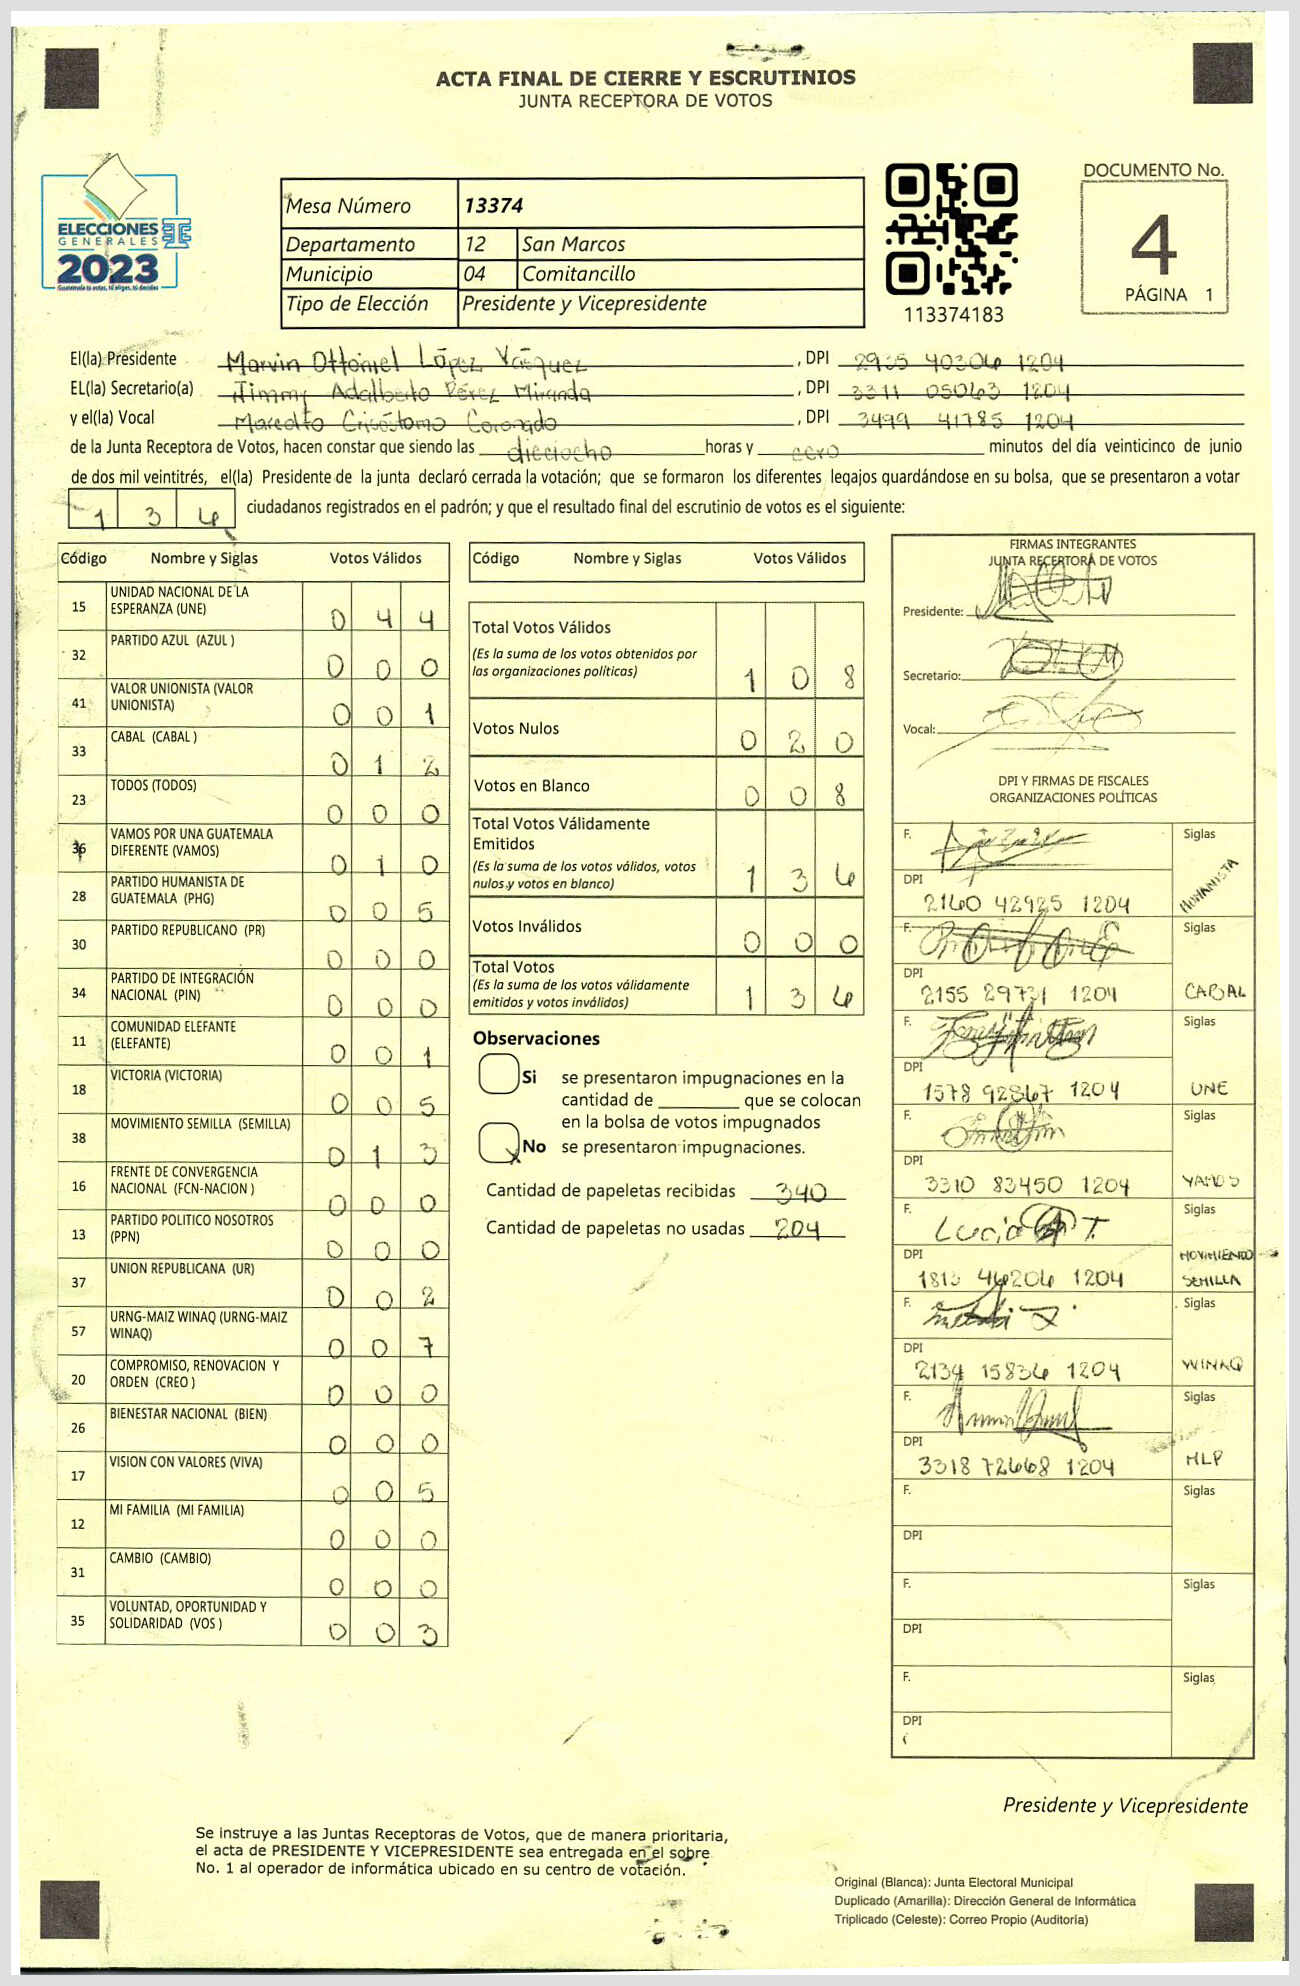 ACTA FINAL DE CIERRE Y ESCRUTINIOS
JUNTA RECEPTORA DE VOTOS
ELECCIONES
GENERALES
2023
Guatemala tú votas, tú eliges, tú decides
Mesa Número 13374
Departamento 12 San Marcos
Municipio 04 Comitancillo
Tipo de Elección Presidente y Vicepresidente
113374183
DOCUMENTO No.
4
PÁGINA 1
El(la) Presidente Marvin Ottoniel López Vásquez, DPI 2935 40306 1204
EL(la) Secretario(a) Jimmy Adalberto Pérez Miranda, DPI 3311 05063 1204
y el(la) Vocal Maredito Crisóstomo Coronado, DPI 3499 41785 1204
de la Junta Receptora de Votos, hacen constar que siendo las dieciocho horas y cero minutos del día veinticinco de junio
de dos mil veintitrés, el(la) Presidente de la junta declaró cerrada la votación; que se formaron los diferentes legajos guardándose en su bolsa, que se presentaron a votar
1 3 6 ciudadanos registrados en el padrón; y que el resultado final del escrutinio de votos es el siguiente:
Código Nombre y Siglas Votos Válidos
15 UNIDAD NACIONAL DE LA ESPERANZA (UNE) 0 4 4
32 PARTIDO AZUL (AZUL ) 0 0 0
41 VALOR UNIONISTA (VALOR UNIONISTA) 0 0 1
33 CABAL (CABAL ) 0 1 2
23 TODOS (TODOS) 0 0 0
36 VAMOS POR UNA GUATEMALA DIFERENTE (VAMOS) 0 1 0
28 PARTIDO HUMANISTA DE GUATEMALA (PHG) 0 0 5
30 PARTIDO REPUBLICANO (PR) 0 0 0
34 PARTIDO DE INTEGRACIÓN NACIONAL (PIN) 0 0 0
11 COMUNIDAD ELEFANTE (ELEFANTE) 0 0 1
18 VICTORIA (VICTORIA) 0 0 5
38 MOVIMIENTO SEMILLA (SEMILLA) 0 1 3
16 FRENTE DE CONVERGENCIA NACIONAL (FCN-NACION ) 0 0 0
13 PARTIDO POLITICO NOSOTROS (PPN) 0 0 0
37 UNION REPUBLICANA (UR) 0 0 2
57 URNG-MAIZ WINAQ (URNG-MAIZ WINAQ) 0 0 7
20 COMPROMISO, RENOVACION Y ORDEN (CREO ) 0 0 0
26 BIENESTAR NACIONAL (BIEN) 0 0 0
17 VISION CON VALORES (VIVA) 0 0 5
12 MI FAMILIA (MI FAMILIA) 0 0 0
31 CAMBIO (CAMBIO) 0 0 0
35 VOLUNTAD, OPORTUNIDAD Y SOLIDARIDAD (VOS ) 0 0 3
Código Nombre y Siglas Votos Válidos
Total Votos Válidos 1 0 8
(Es la suma de los votos obtenidos por
las organizaciones políticas)
Votos Nulos 0 2 0
Votos en Blanco 0 0 8
Total Votos Válidamente
Emitidos 1 3 6
(Es la suma de los votos válidos, votos
nulos y votos en blanco)
Votos Inválidos 0 0 0
Total Votos 1 3 6
(Es la suma de los votos válidamente
emitidos y votos inválidos)
Observaciones
Si se presentaron impugnaciones en la
cantidad de ________ que se colocan
en la bolsa de votos impugnados
X No se presentaron impugnaciones.
Cantidad de papeletas recibidas 340
Cantidad de papeletas no usadas 204
FIRMAS INTEGRANTES
JUNTA RECEPTORA DE VOTOS
Presidente:
Secretario:
Vocal:
DPI Y FIRMAS DE FISCALES
ORGANIZACIONES POLÍTICAS
F. Siglas
DPI 2160 42925 1204 HUMANISTA
F. Siglas
DPI 2155 29731 1204 CABAL
F. Siglas
DPI 1578 92867 1204 UNE
F. Siglas
DPI 3310 83450 1204 VAMOS
F. Lucia T. Siglas
DPI 1813 46206 1204 MOVIMIENDO SEMILLA
F. Siglas
DPI 2134 15836 1204 WINAQ
F. Siglas
DPI 3318 72668 1204 MLP
F. Siglas
DPI
F. Siglas
DPI
F. Siglas
DPI
Presidente y Vicepresidente
Se instruye a las Juntas Receptoras de Votos, que de manera prioritaria,
el acta de PRESIDENTE Y VICEPRESIDENTE sea entregada en el sobre
No. 1 al operador de informática ubicado en su centro de votación.
Original (Blanca): Junta Electoral Municipal
Duplicado (Amarilla): Dirección General de Informática
Triplicado (Celeste): Correo Propio (Auditoría)